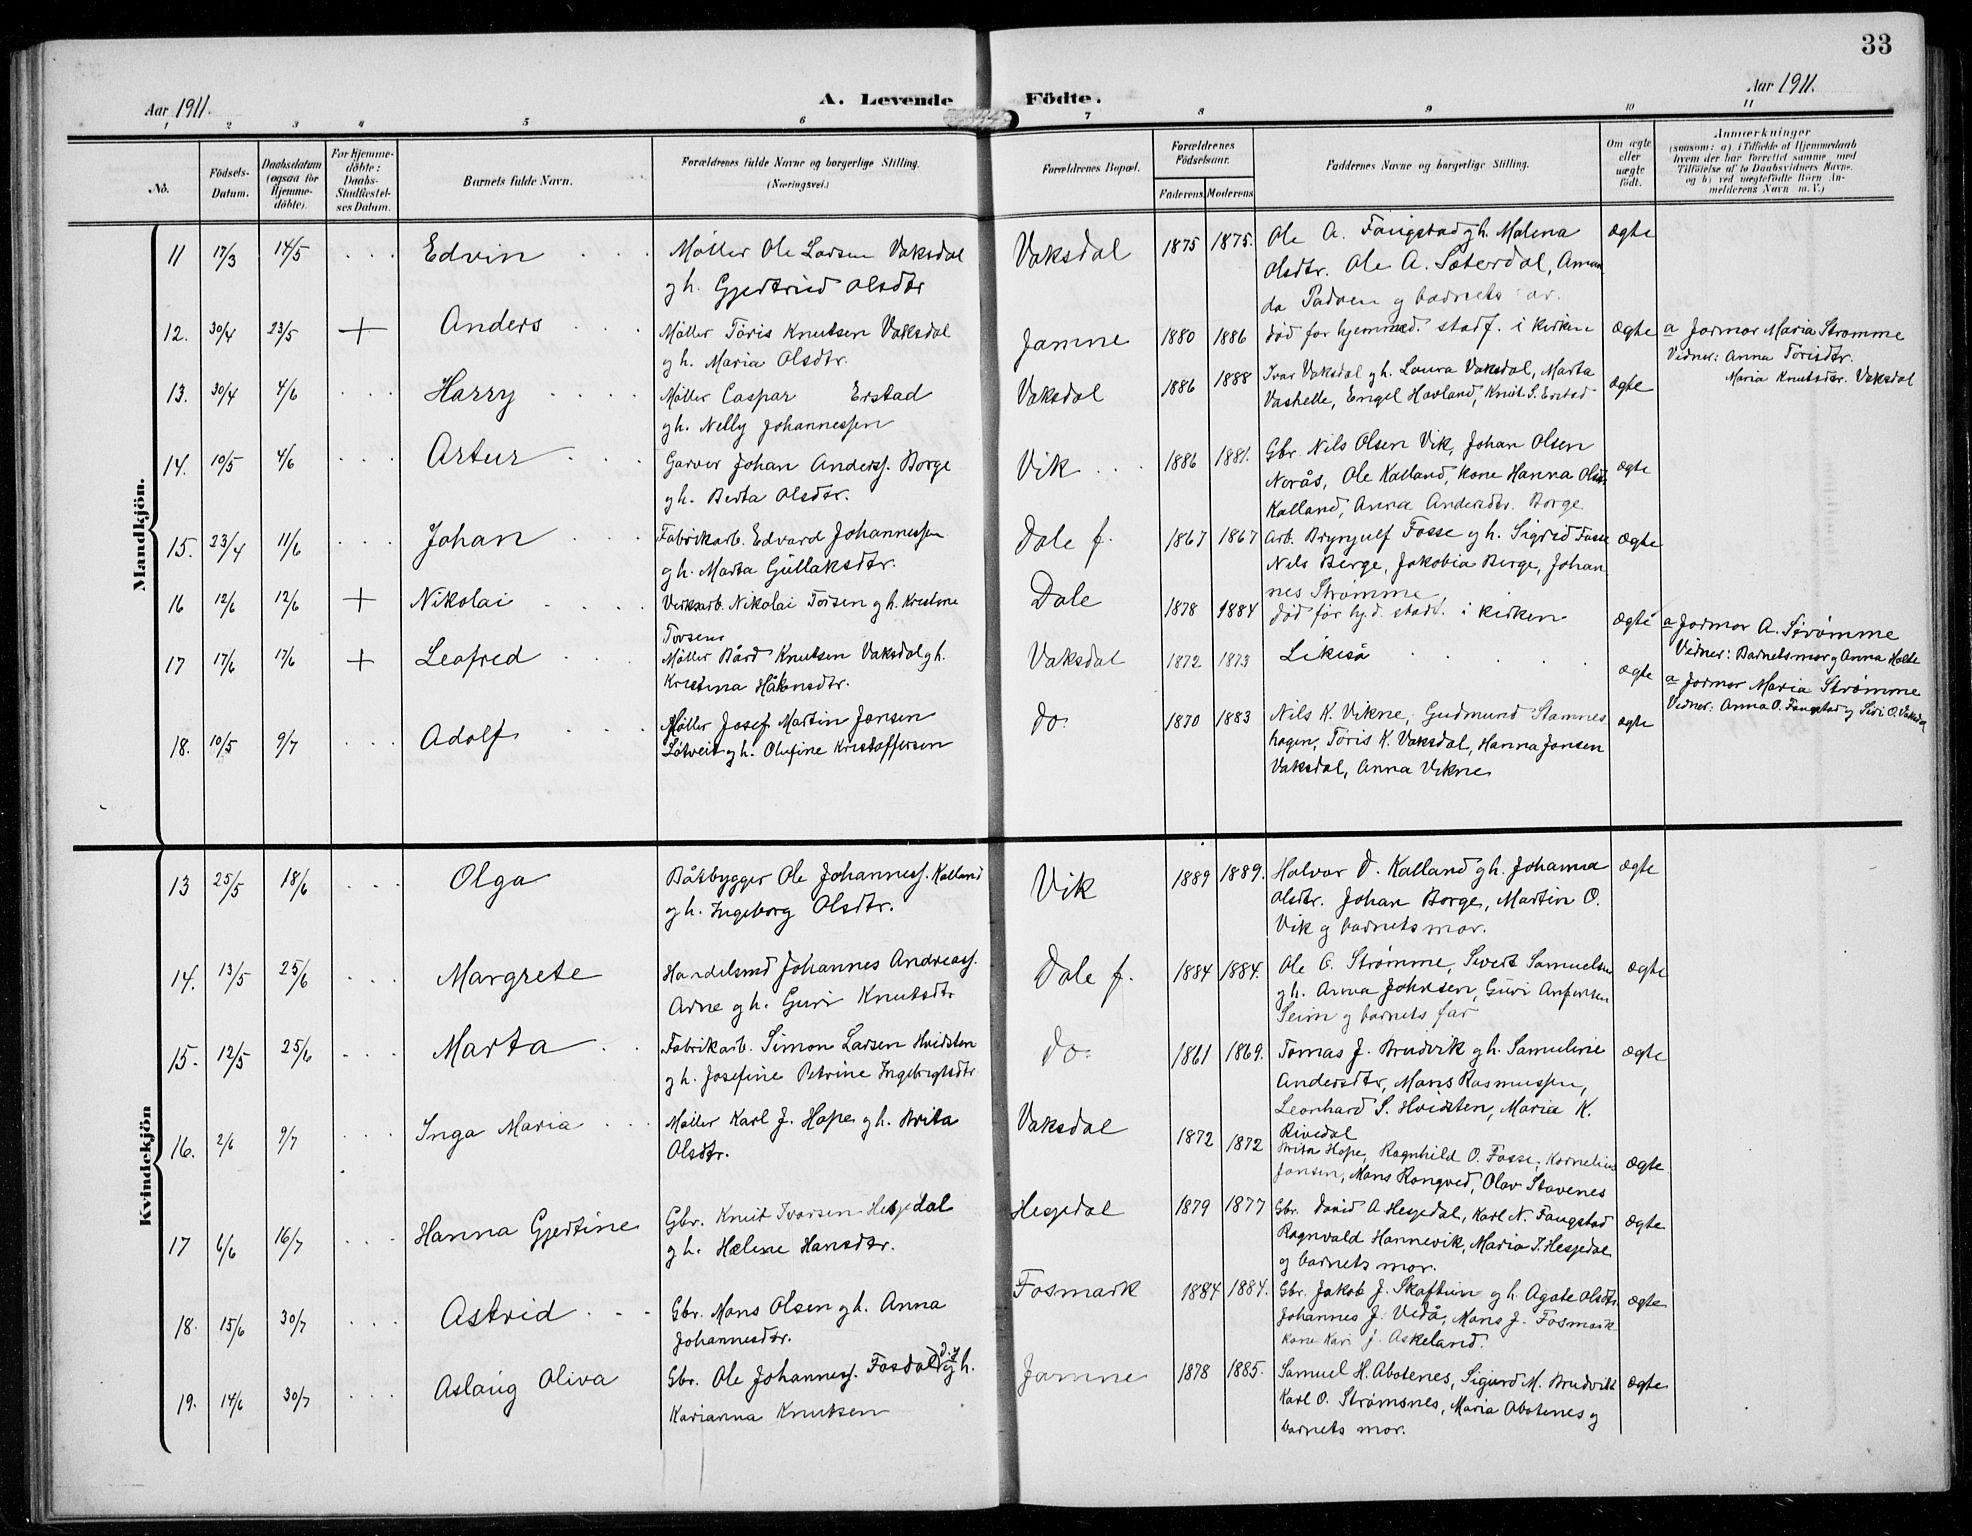 33
Aar 1911.
A. Levende Födte.
Aar 1911.
1 2 3 4 5 6 7 8 9 10 11
No.
Födsels-Datum.
Daabsdatum (ogsaa for Hjemme-döbte).
For Hjemme-döbte: Daabs-Stadfæstel-ses Datum.
Barnets fulde Navn.
Forældrenes fulde Navne og borgerlige Stilling.
(Næringsvei.)
Forældrenes Bopæl.
Forældrenes Födselsaar.
Faderens. Moderens.
Faddernes Navne og borgerlige Stilling.
Om ægte eller uægte födt.
Anmærkninger
(saasom: a) i Tilfælde af Hjemmedaab hvem der har forrettet samme med Tilföielse af to Daabsvidners Navne. og b) ved uægtefödte Börn An-melderens Navn m. V.)
Mandkjön.
11 17/3 14/5 Edvin Møller Ole Larsen Vaksdal Vaksdal 1875 1875. Ole A. Fangstad g h. Malena ægte
g h. Gjertrud Olsdtr Olsdtr. Ole A. Sæterdal, Aman
da Padven g barnets
12. 30/4 23/5 + Anders Møller Toris Knutsen Vaksdal Jamne 1880 1886 død før hjemmed. stadf. i kirken ægte a Jormor Maria Strømme
g h. Maria Olsdtr. Vidner: Anna Torisdtr.
Maria Knutsdtr. Vaksdal
13. 30/4 4/6 Harry Møller Caspar Erstad Vaksdal 1886 1888 Ivar Vaksdal g h. Laura Vaksdal, Marta ægte
g h. Nelly Johannessen Vashelle, Engel Havland, Knut S. Erstad
14. 10/5 4/6 Artur Garver Johan Anderss. Borge Vik 1886 1881. Gbr. Nils Olsen Vik, Johan Olsen ægte
g h. Berta Olsdtr. Norås, Ole Kalland, kone Hanna Olsdtr
Kalland, Anna Andersdtr. Borge
15. 23/4 11/6 Johan Fabrikarb. Edvard Johannessen Dale f. 1867 1867 Arb. Brynjulf Fosse g h. Sigrid Fosse ægte
g h. Marta Gullaksdtr. Nils Berge, Jakobia Berge, Johan
nes Strømme
16 12/6 12/6 + Nikolai Verksarb. Nikolai Torsen g h. Kristine Dale 1878 1884 død før hj.d. stadf. i kirken ægte a Jormor A. Strømme
Torsen Vidner: Barnets mor g Anna Holte
17 17/6 17/6 + Leafred Møller Bård Knutsen Vaksdal g h. Vaksdal 1872 1873 Likeså ægte a Jormor Maria Strømme
Kristina Håkonsdtr. Vidner: Anna O. Fangstad g Siri O. Vaksdal
18. 10/5 9/7 Adolf Møller Josef Martin Jansen do. 1870 1883 Nils K. Vikne, Gudmund Stamnes ægte
Løtveit g h. Olufine Kristoffersen hagen, Toris K. Vaksdal, Hanna Jansen
Vaksdal, Anna Vikne
Kvindekjön
13 25/5 18/6 Olga Båtbygger Ole Johanness. Kalland Vik 1889 1889. Halvor D. Kalland g h. Johanna ægte
g h. Ingeborg Olsdtr. Olsdtr. Johan Borge, Martin O.
Vik g barnets mor.
14. 13/5 25/6 Margrete Handelsmd Johannes Andreass. Dale f. 1884 1884. Ole O. Strømme, Sivert Samuelsen ægte
Arne g h. Guri Knutsdtr g h. Anna Johnsen, Guri Anfinsen
Seim g barnets far
15. 12/5 25/6 Marta Fabrikarb. Simon Larsen Hvidsten do. 1861 1869. Tomas J. Brudvik g h. Samuline ægte
g h. Josefine Petrine Ingebrigtsdtr Andersdtr, Mons Rasmussen,
Leonhard S. Hvidsten, Maria K.
Rivedal
16. 2/6 9/7 Inga Maria Møller Karl J. Hope g h. Brita Vaksdal 1872 1872 Brita Hope, Ragnhild O. Fosse, Kornelius ægte
Olsdtr. Jansen, Mons Rongved, Olav Stavenes
17 6/6 16/7 Hanna Gjertine Gbr. Knut Ivarsen Hesjedal Hesjedal 1879 1877 Gbr. David A. Hesjedal, Karl N. Fangstad ægte
g h. Helene Hansdtr. Ragnvald Hannevik, Maria I. Hesjedal
g barnets mor.
18. 15/6 30/7 Astrid Gbr. Mons Olsen g h. Anna Fosmark 1884 1884. Gbr. Jakob J. Skaftun g h. Agate Olsdtr. ægte
Johannesdtr. Johannes J. Vedå, Mons J. Fosmark
kone Kari J. Askeland.
19. 14/6 30/7 Aslaug Oliva Gbr. Ole Johanness. Fosdal d.y. g h. Jamne 1878 1885. Samuel H. Abotenes, Sigurd M. Brudvik ægte
Karianna Knutsen Karl O. Strømsnes, Maria Abotenes g
barnets mor.